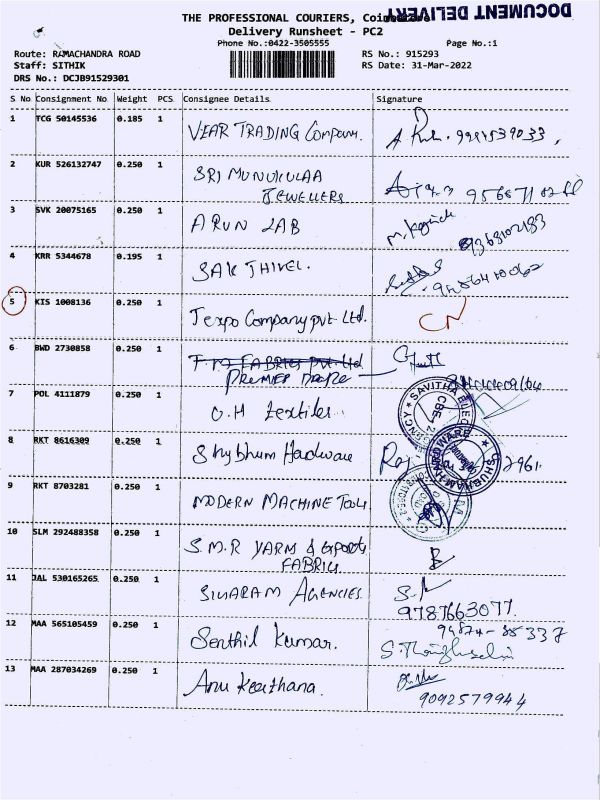 DOCUMENT DELIVERY
THE PROFESSIONAL COURIERS, Coimbatore
Delivery Runsheet - PC2
Phone No.:0422-3505555
Page No.:1
Route: RAMACHANDRA ROAD
RS No.: 915293
Staff: SITHIK
RS Date: 31-Mar-2022
DRS No.: DCJB91529301
S No Consignment No Weight PCS Consignee Details Signature
1 TCG 50145536 0.185 1 VEAR TRADING Company.
2 KUR 526132747 0.250 1 SRI MUNUKULAA
JEWELLERS
3 SVK 20075165 0.250 1 ARUN LAB
4 KRR 5344678 0.195 1 SAKTHIVEL.
5 KIS 1008136 0.250 1 Texpo Company pvt Ltd. CN
6 BWD 2730858 0.250 1 FABRICS Pvt. Ltd
PREMIER
7 POL 4111879 0.250 1 O.H textiles
8 RKT 8616309 0.250 1 Shubhum Hardware 2961
9 RKT 8703281 0.250 1 MODERN MACHINE Tools
10 SLM 292488358 0.250 1 S.M.R YARN & Exports
FABRICS
11 JAL 530165265 0.250 1 SIVARAM AGENCIES
9787663077
12 MAA 565105459 0.250 1 Senthil Kumar.
13 MAA 287034269 0.250 1 Anu Keerthana.
9092579944